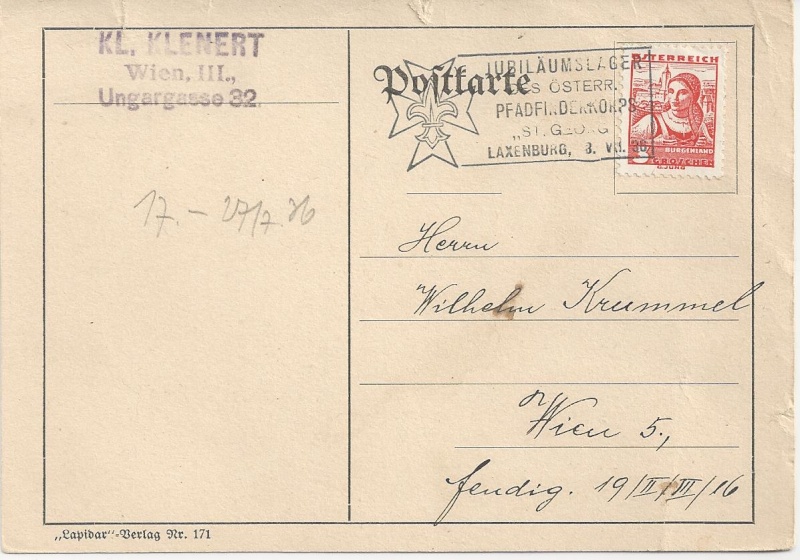 KL. KLENERT
Wien, III.,
Ungargasse 32.
17. – 27/7 36
Postkarte
JUBILÄUMSLAGER
S ÖSTERR.
PFADFINDERKORPS
„ST. GEORG
LAXENBURG, 3. VII. 36
ÖSTERREICH
BURGENLAND
GROSCHEN
Herrn
Wilhelm Krummel
Wien 5.,
fendig. 19/II/III/16
„Lapidar"-Verlag Nr. 171